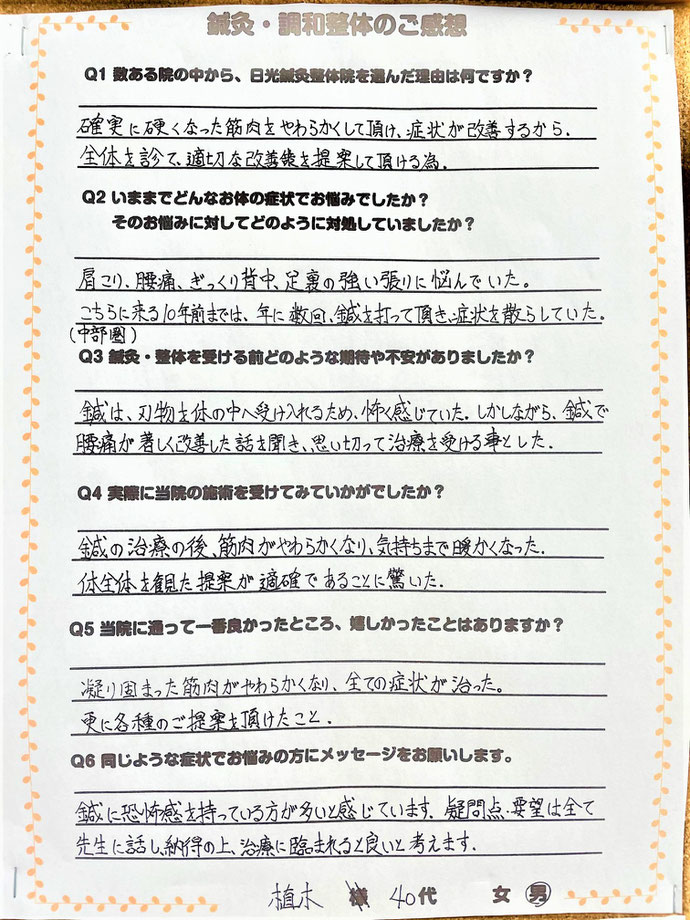 鍼灸・調和整体のご感想
Q1 数ある院の中から、日光鍼灸整体院を選んだ理由は何ですか？
確実に硬くなった筋肉をやわらかくして頂け、症状が改善するから.
全体を診て、適切な改善策を提案して頂ける為.
Q2 いままでどんなお体の症状でお悩みでしたか？
そのお悩みに対してどのように対処していましたか？
肩こり、腰痛、ぎっくり背中、足裏の強い張りに悩んでいた。
こちらに来る10年前までは、年に数回、鍼を打って頂き、症状を散らしていた。
(中部圏)
Q3 鍼灸・整体を受ける前どのような期待や不安がありましたか？
鍼は、刃物を体の中へ受け入れるため、怖く感じていた。しかしながら、鍼で
腰痛が著しく改善した話を聞き、思い切って治療を受ける事とした.
Q4 実際に当院の施術を受けてみていかがでしたか？
鍼の治療の後、筋肉がやわらかくなり、気持ちまで暖かくなった.
体全体を観た提案が適確であることに驚いた.
Q5 当院に通って一番良かったところ、嬉しかったことはありますか？
凝り固まった筋肉がやわらかくなり、全ての症状が治った。
更に各種のご提案を頂けたこと.
Q6 同じような症状でお悩みの方にメッセージをお願いします。
鍼に恐怖感を持っている方が多いと感じています. 疑問点・要望は全て
先生に話し、納得の上、治療に臨まれると良いと考えます.
植木 様 40代 女 男